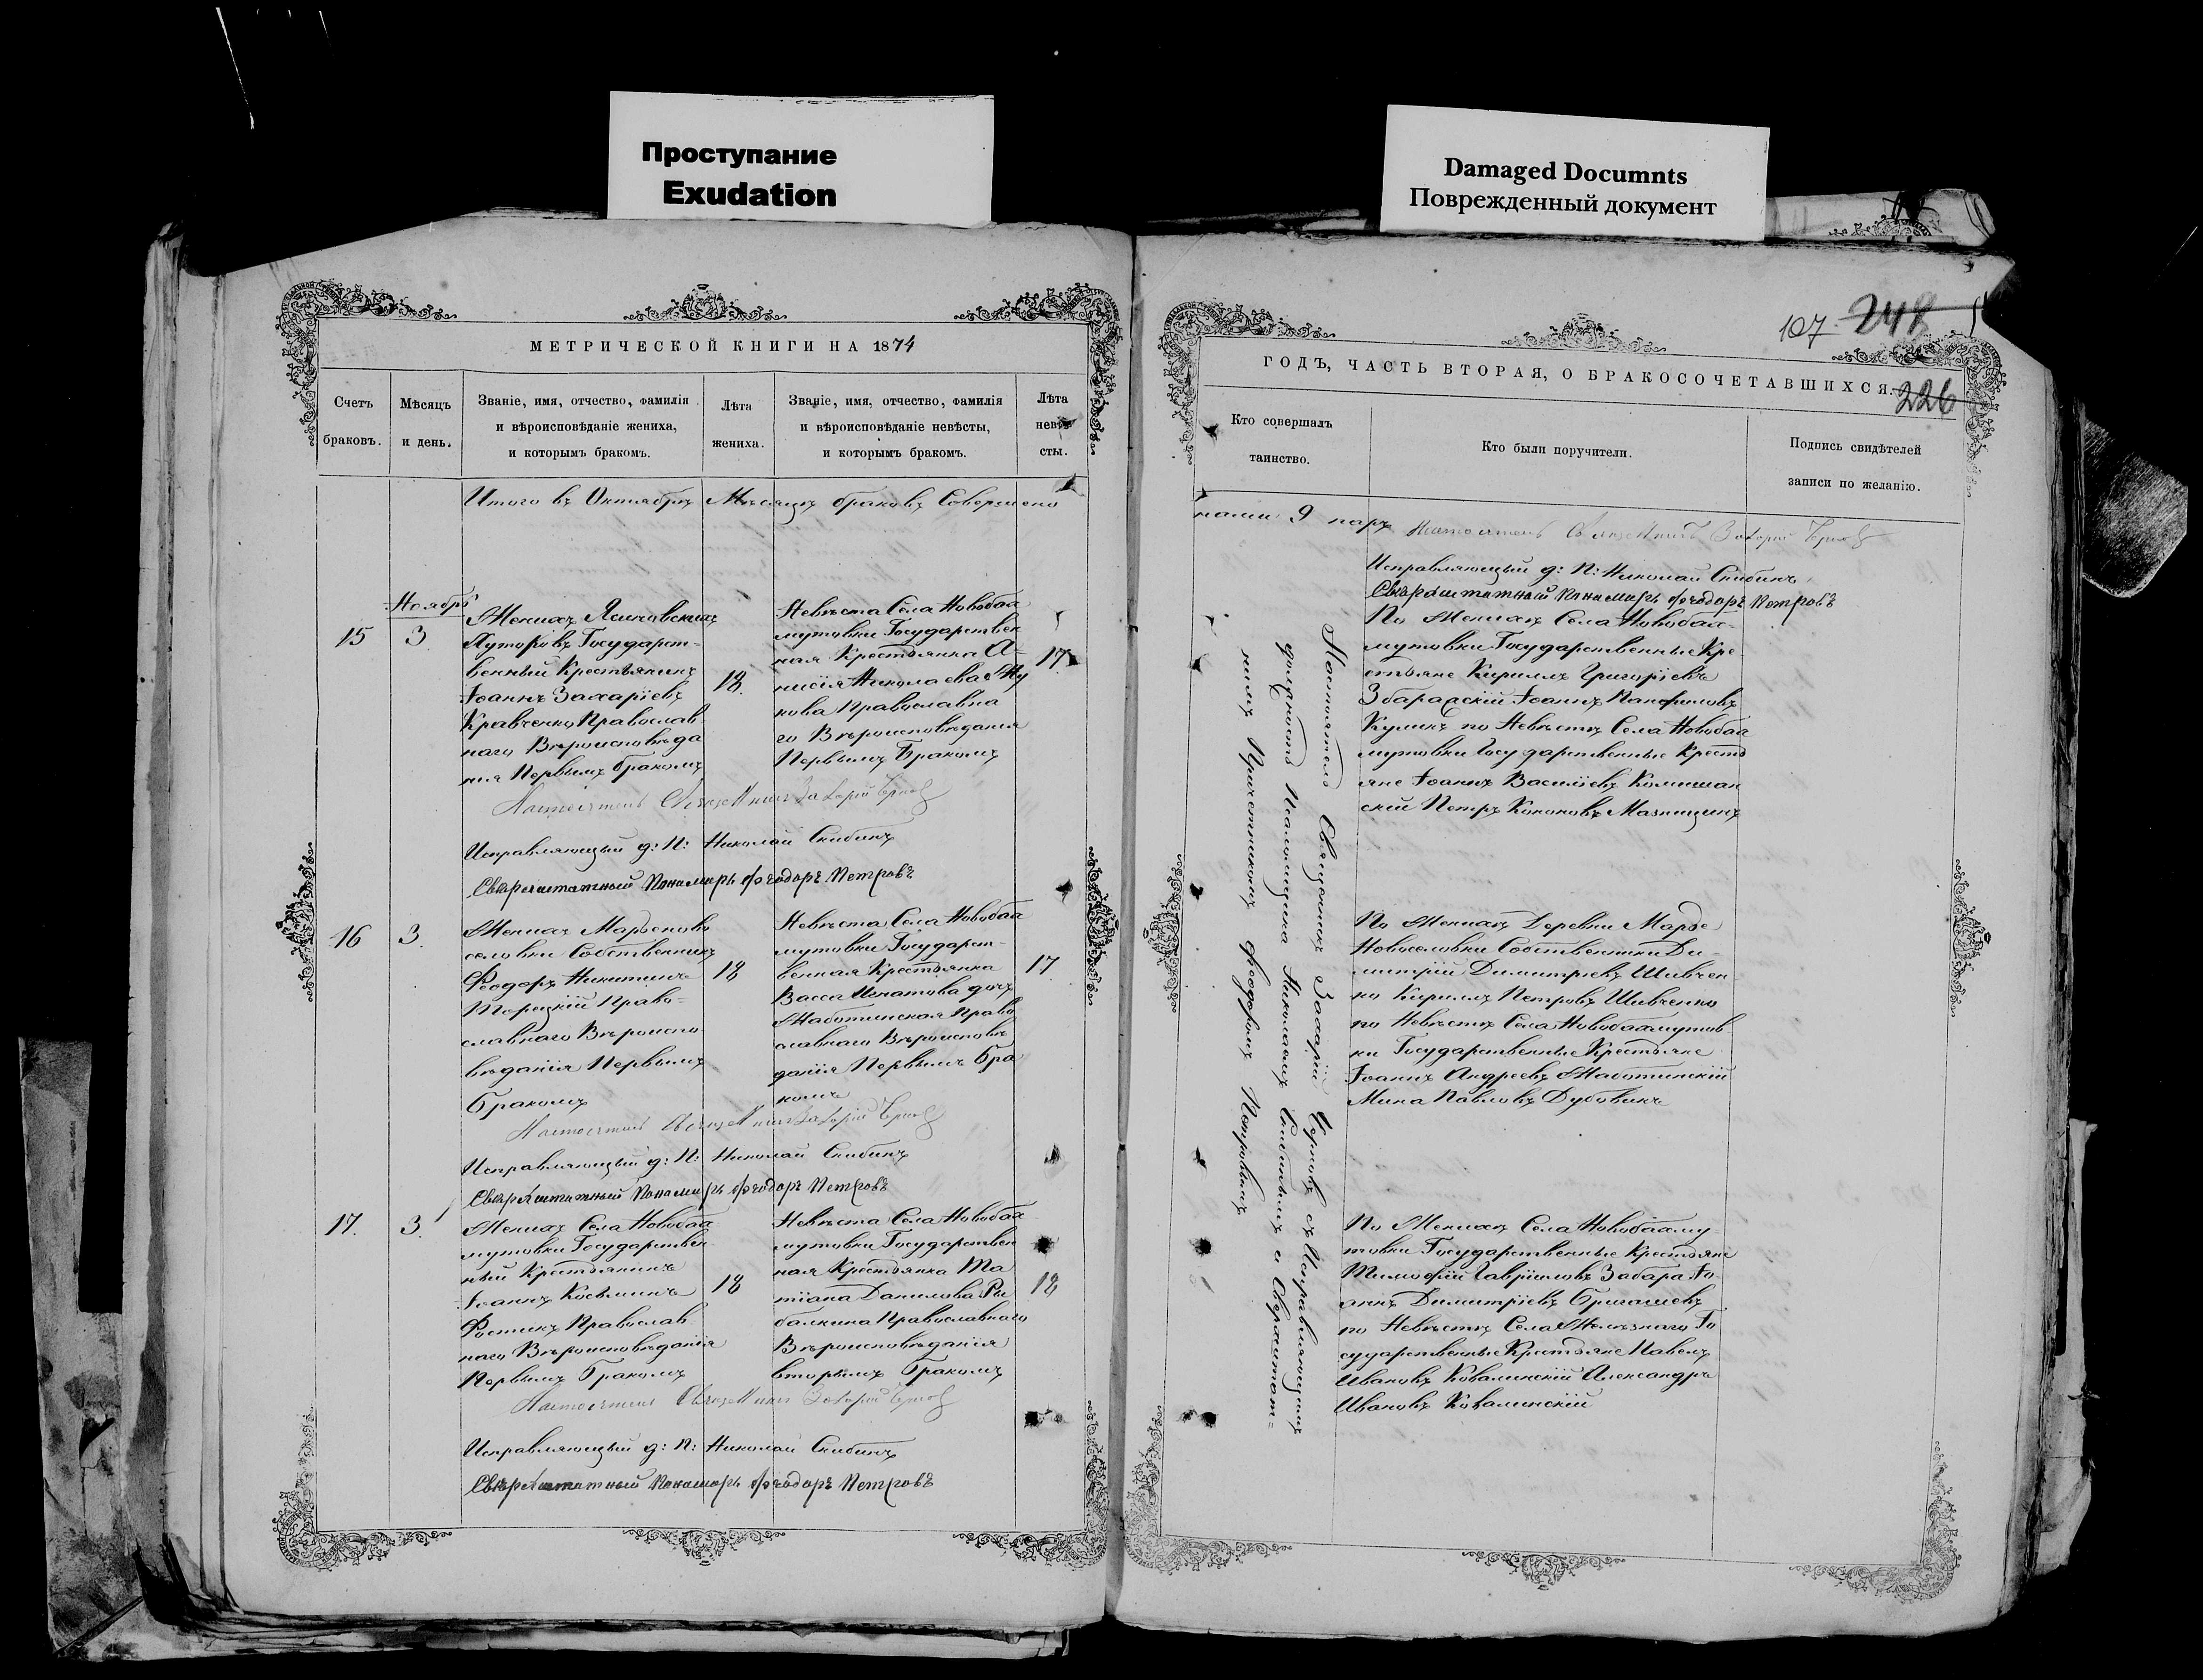 Проступание
Exudation
Damaged Documnts
Поврежденный документ
МЕТРИЧЕСКОЙ КНИГИ НА 1874
Счетъ браковъ.
Мѣсяцъ и день.
Званіе, имя, отчество, фамилія
и вѣроисповѣданіе жениха,
и которымъ бракомъ.
Лѣта
жениха.
Званіе, имя, отчество, фамилія
и вѣроисповѣданіе невѣсты,
и которымъ бракомъ.
Лѣта
невѣ-
сты.
Итого въ Октябрѣ Мѣсяцѣ браковъ Совершено
Ноябрь
15
3
Женихъ
Хуторовъ Государст-
венный Крестьянинъ
Іоаннъ Захаріевъ
Кравченко Православ
наго Вѣроисповѣда
нія Первымъ бракомъ
18.
Невѣста Села Новобах
мутовки Государствен
ная Крестьянка
Николаева
кова Православна
го Вѣроисповѣданія
Первымъ Бракомъ
17
Настоятель Священникъ Захарій
Исправляющій д: П: Николай Скибинъ
Сверхштатный Пономарь Ѳеодоръ Петровъ
16
3.
Женихъ
селовки Собственникъ
Ѳеодоръ Никитинъ
Торецкій Право-
славнаго Вѣроиспо
вѣданія Первымъ
бракомъ
18
Невѣста Села Новобах
мутовки Государст-
венная Крестьянка
Васса Игнатова дочь
Жаботинская Право
славнаго Вѣроисповѣ
данія Первымъ Бра
комъ
17
Настоятель Священникъ Захарій
Исправляющій д: П: Николай Скибинъ
Сверхштатный Пономарь Ѳеодоръ Петровъ
17.
3.
Женихъ Села Новобах
мутовки Государствен
ный Крестьянинъ
Іоаннъ Косьминъ
Православ
наго Вѣроисповѣданія
Первымъ Бракомъ
18
Невѣста Села Новобах
мутовки Государствен
ная Крестьянка Та
тіана Данилова Ры
балкина Православнаго
Вѣроисповѣданія
вторымъ Бракомъ
18
Настоятель Священникъ Захарій
Исправляющій д: П: Николай Скибинъ
Сверхштатный Пономарь Ѳеодоръ Петровъ
107 248
ГОДЪ, ЧАСТЬ ВТОРАЯ, О БРАКОСОЧЕТАВШИХСЯ.
226
Кто совершалъ
таинство.
Кто были поручители.
Подпись свидѣтелей
записи по желанію.
9 паръ Настоятель Священникъ Захарій
Исправляющій д: П: Николай Скибинъ
Сверхштатный Пономарь Ѳеодоръ Петровъ
Настоятель Священникъ Захарій съ Исправляющимъ
должность Псаломщика Николаемъ Скибинымъ и Сверхштат-
нымъ Причетникомъ Ѳеодоромъ Петровымъ
По Женихѣ Села Новобах-
мутовки Государственные Кре-
стьяне Кириллъ Григоріевъ
Збаражскій Іоаннъ Панфиловъ
Куликъ по Невѣстѣ Села Новобах
мутовки Государственные Кресть
яне Іоаннъ Василіевъ Комишан
скій Петръ Кононовъ
По Женихѣ Деревни
Новоселовки Собственники Ди-
митрій Димитріевъ Шевчен-
ко Кириллъ Петровъ Шевченко
по Невѣстѣ Села Новобахмутов
ки Государственные Крестьяне
Іоаннъ Андреевъ Жаботинскій
Мина Павловъ Дубовикъ
По Женихѣ Села Новобахму-
товки Государственные Крестьяне
Тимофій Гавріиловъ Забара Іо-
аннъ Димитріевъ
по Невѣстѣ Села Желѣзнаго Го
сударственные Крестьяне Павелъ
Ивановъ Ковалинскій Александръ
Ивановъ Ковалинскій